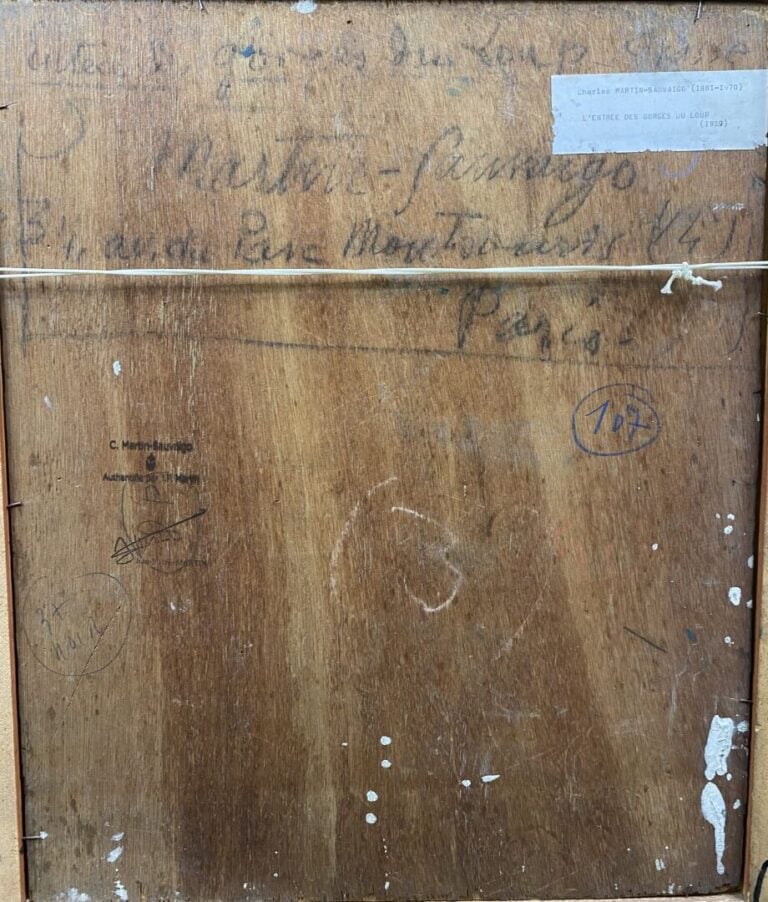 gorges du Loup
Charles MARTIN-SAUVAIGO (1881-1970)
L'ENTREE DES GORGES DU LOUP
(1939)
Martin-Sauvaigo
31, av. du Parc Montsouris (14e)
Paris.
107
C. Martin-Sauvaigo
Authentifié par J.P. Martin